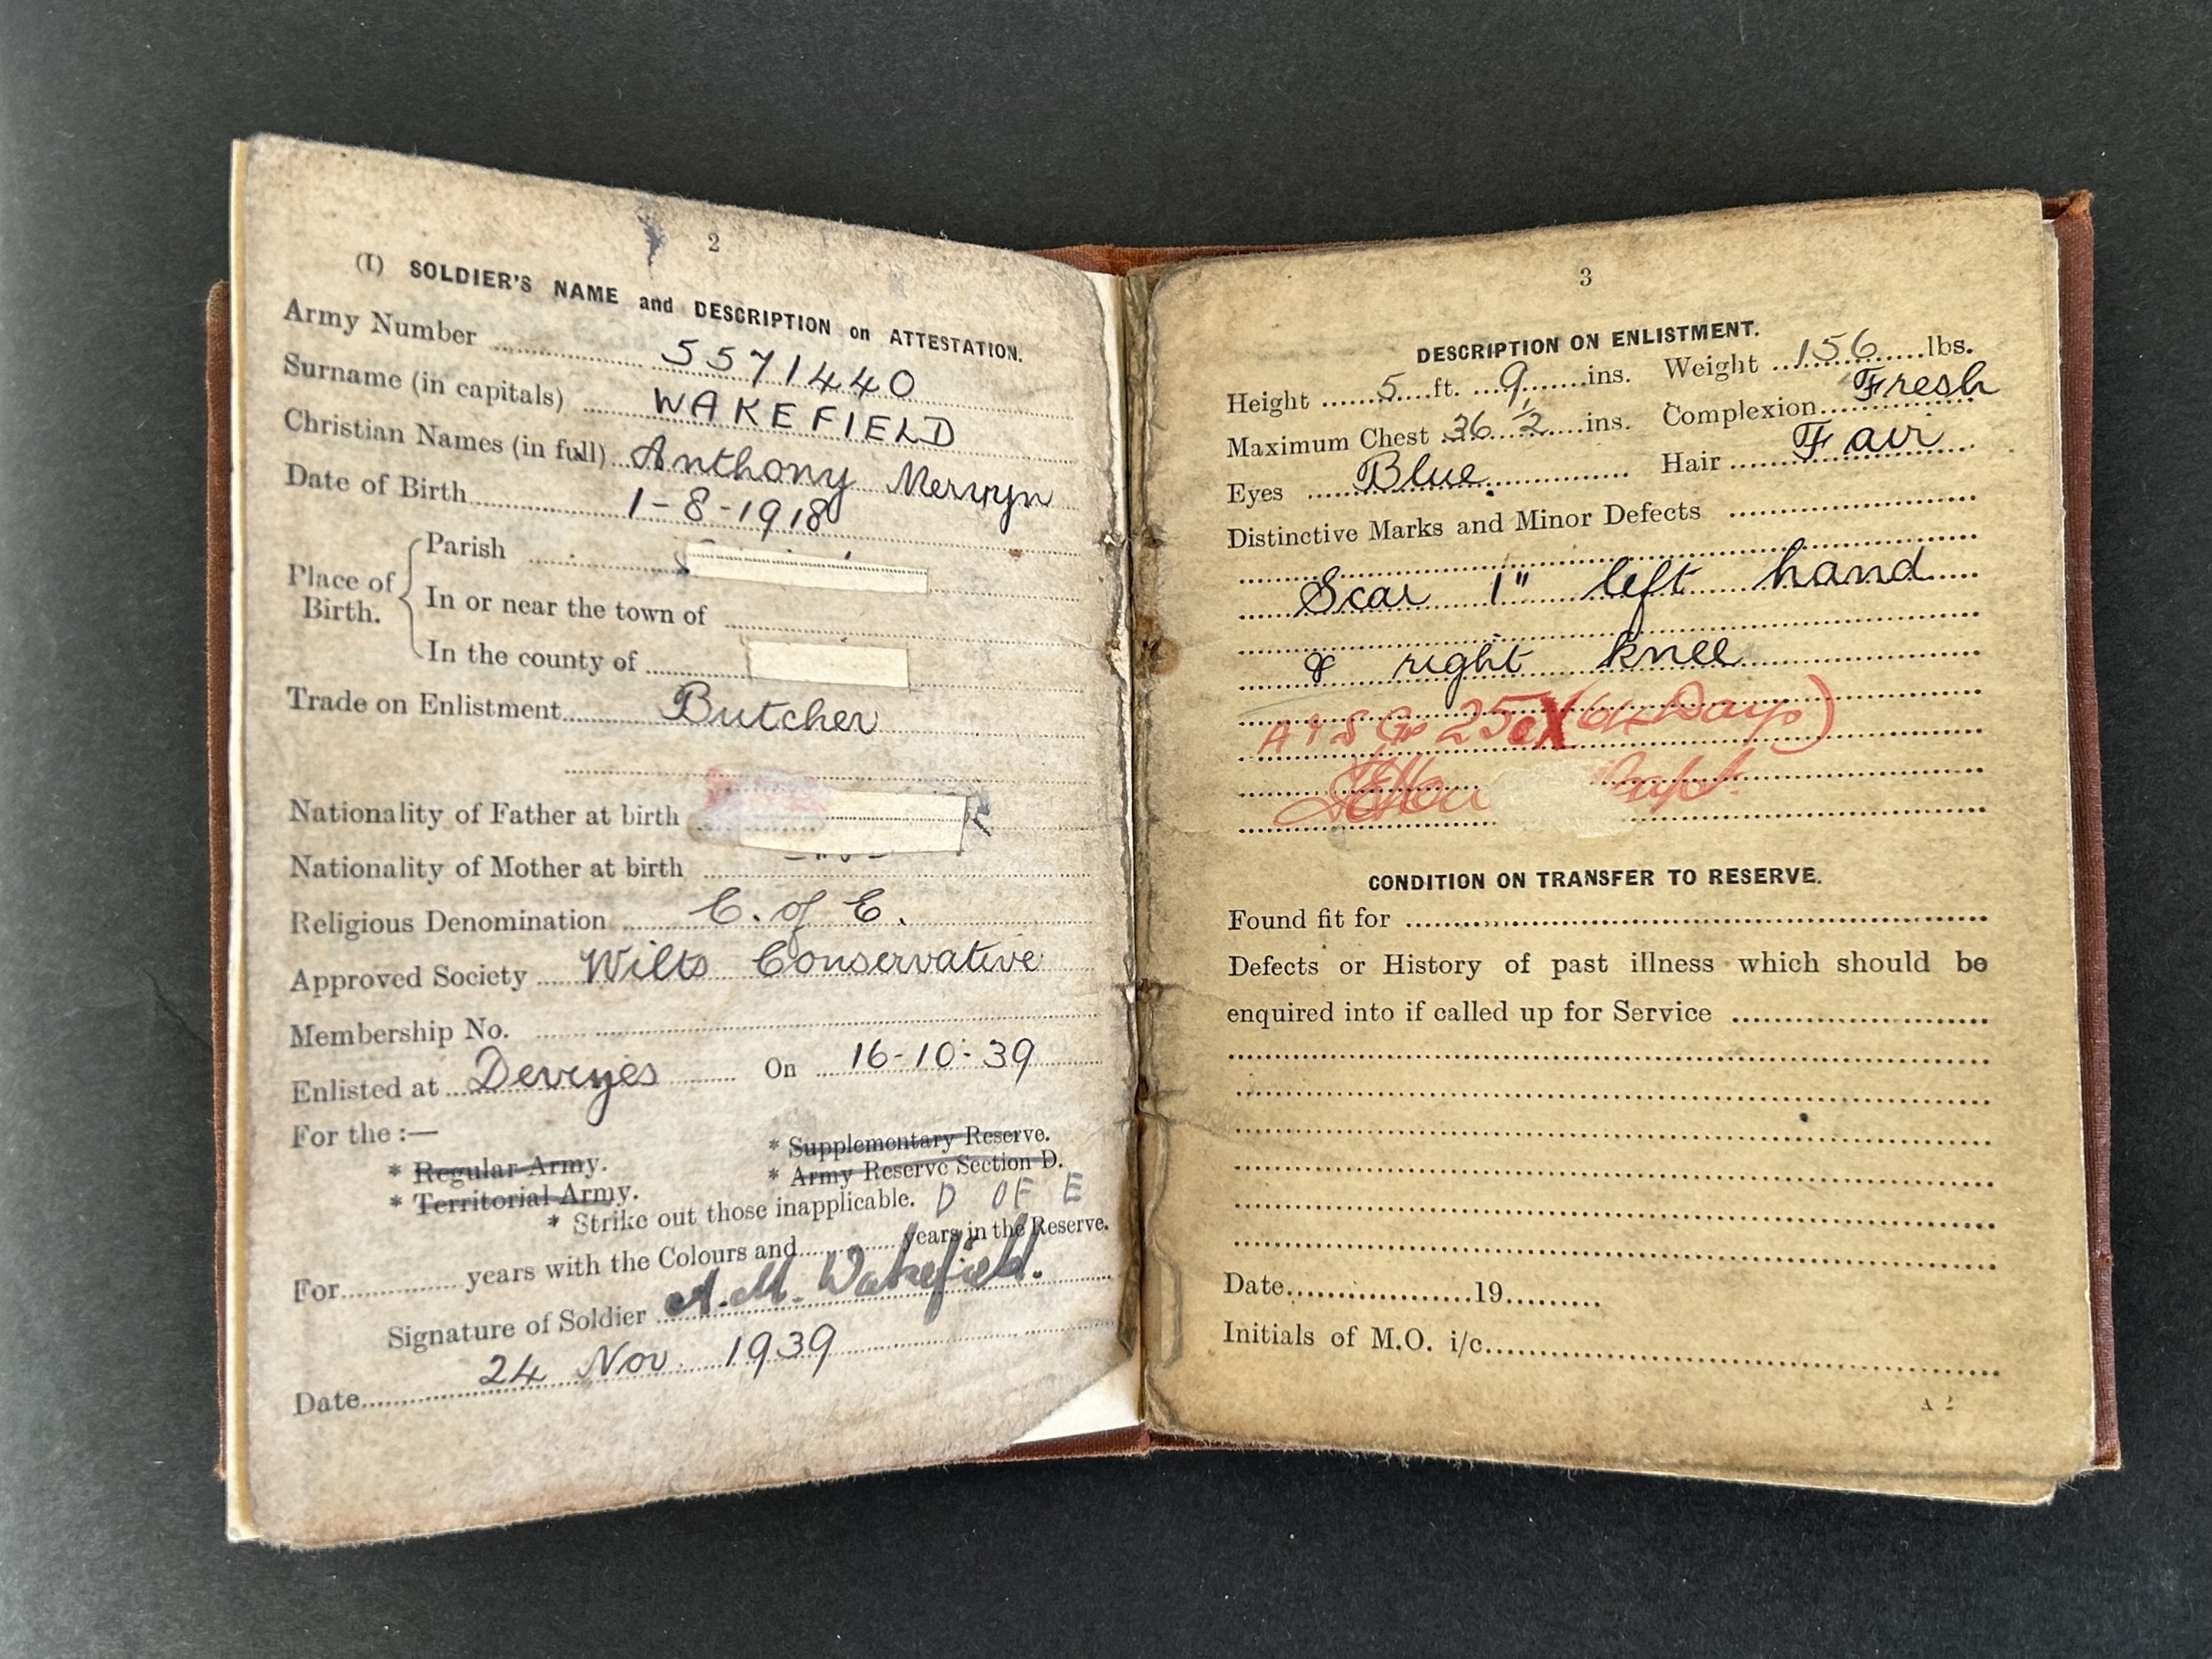 2
(I) SOLDIER'S NAME and DESCRIPTION on ATTESTATION.
Army Number 5571440
Surname (in capitals) WAKEFIELD
Christian Names (in full) Anthony Mervyn
Date of Birth 1-8-1918
Place of Birth.
Parish
In or near the town of
In the county of
Trade on Enlistment Butcher
Nationality of Father at birth
Nationality of Mother at birth
Religious Denomination C. of E.
Approved Society Wilts Conservative
Membership No.
Enlisted at Devizes On 16-10-39
For the :—
* Regular Army. * Supplementary Reserve.
* Territorial Army. * Army Reserve Section D.
* Strike out those inapplicable. D OF E
For years with the Colours and years in the Reserve.
Signature of Soldier A. M. Wakefield.
Date 24 Nov 1939
3
DESCRIPTION ON ENLISTMENT.
Height 5 ft. 9 ins. Weight 156 lbs.
Maximum Chest 36 1/2 ins. Complexion Fresh
Eyes Blue Hair Fair
Distinctive Marks and Minor Defects
Scar 1" left hand
& right knee
A & S Gp 25 X (64 Days)
Capt.
CONDITION ON TRANSFER TO RESERVE.
Found fit for
Defects or History of past illness which should be
enquired into if called up for Service
Date 19
Initials of M.O. i/c
A 2